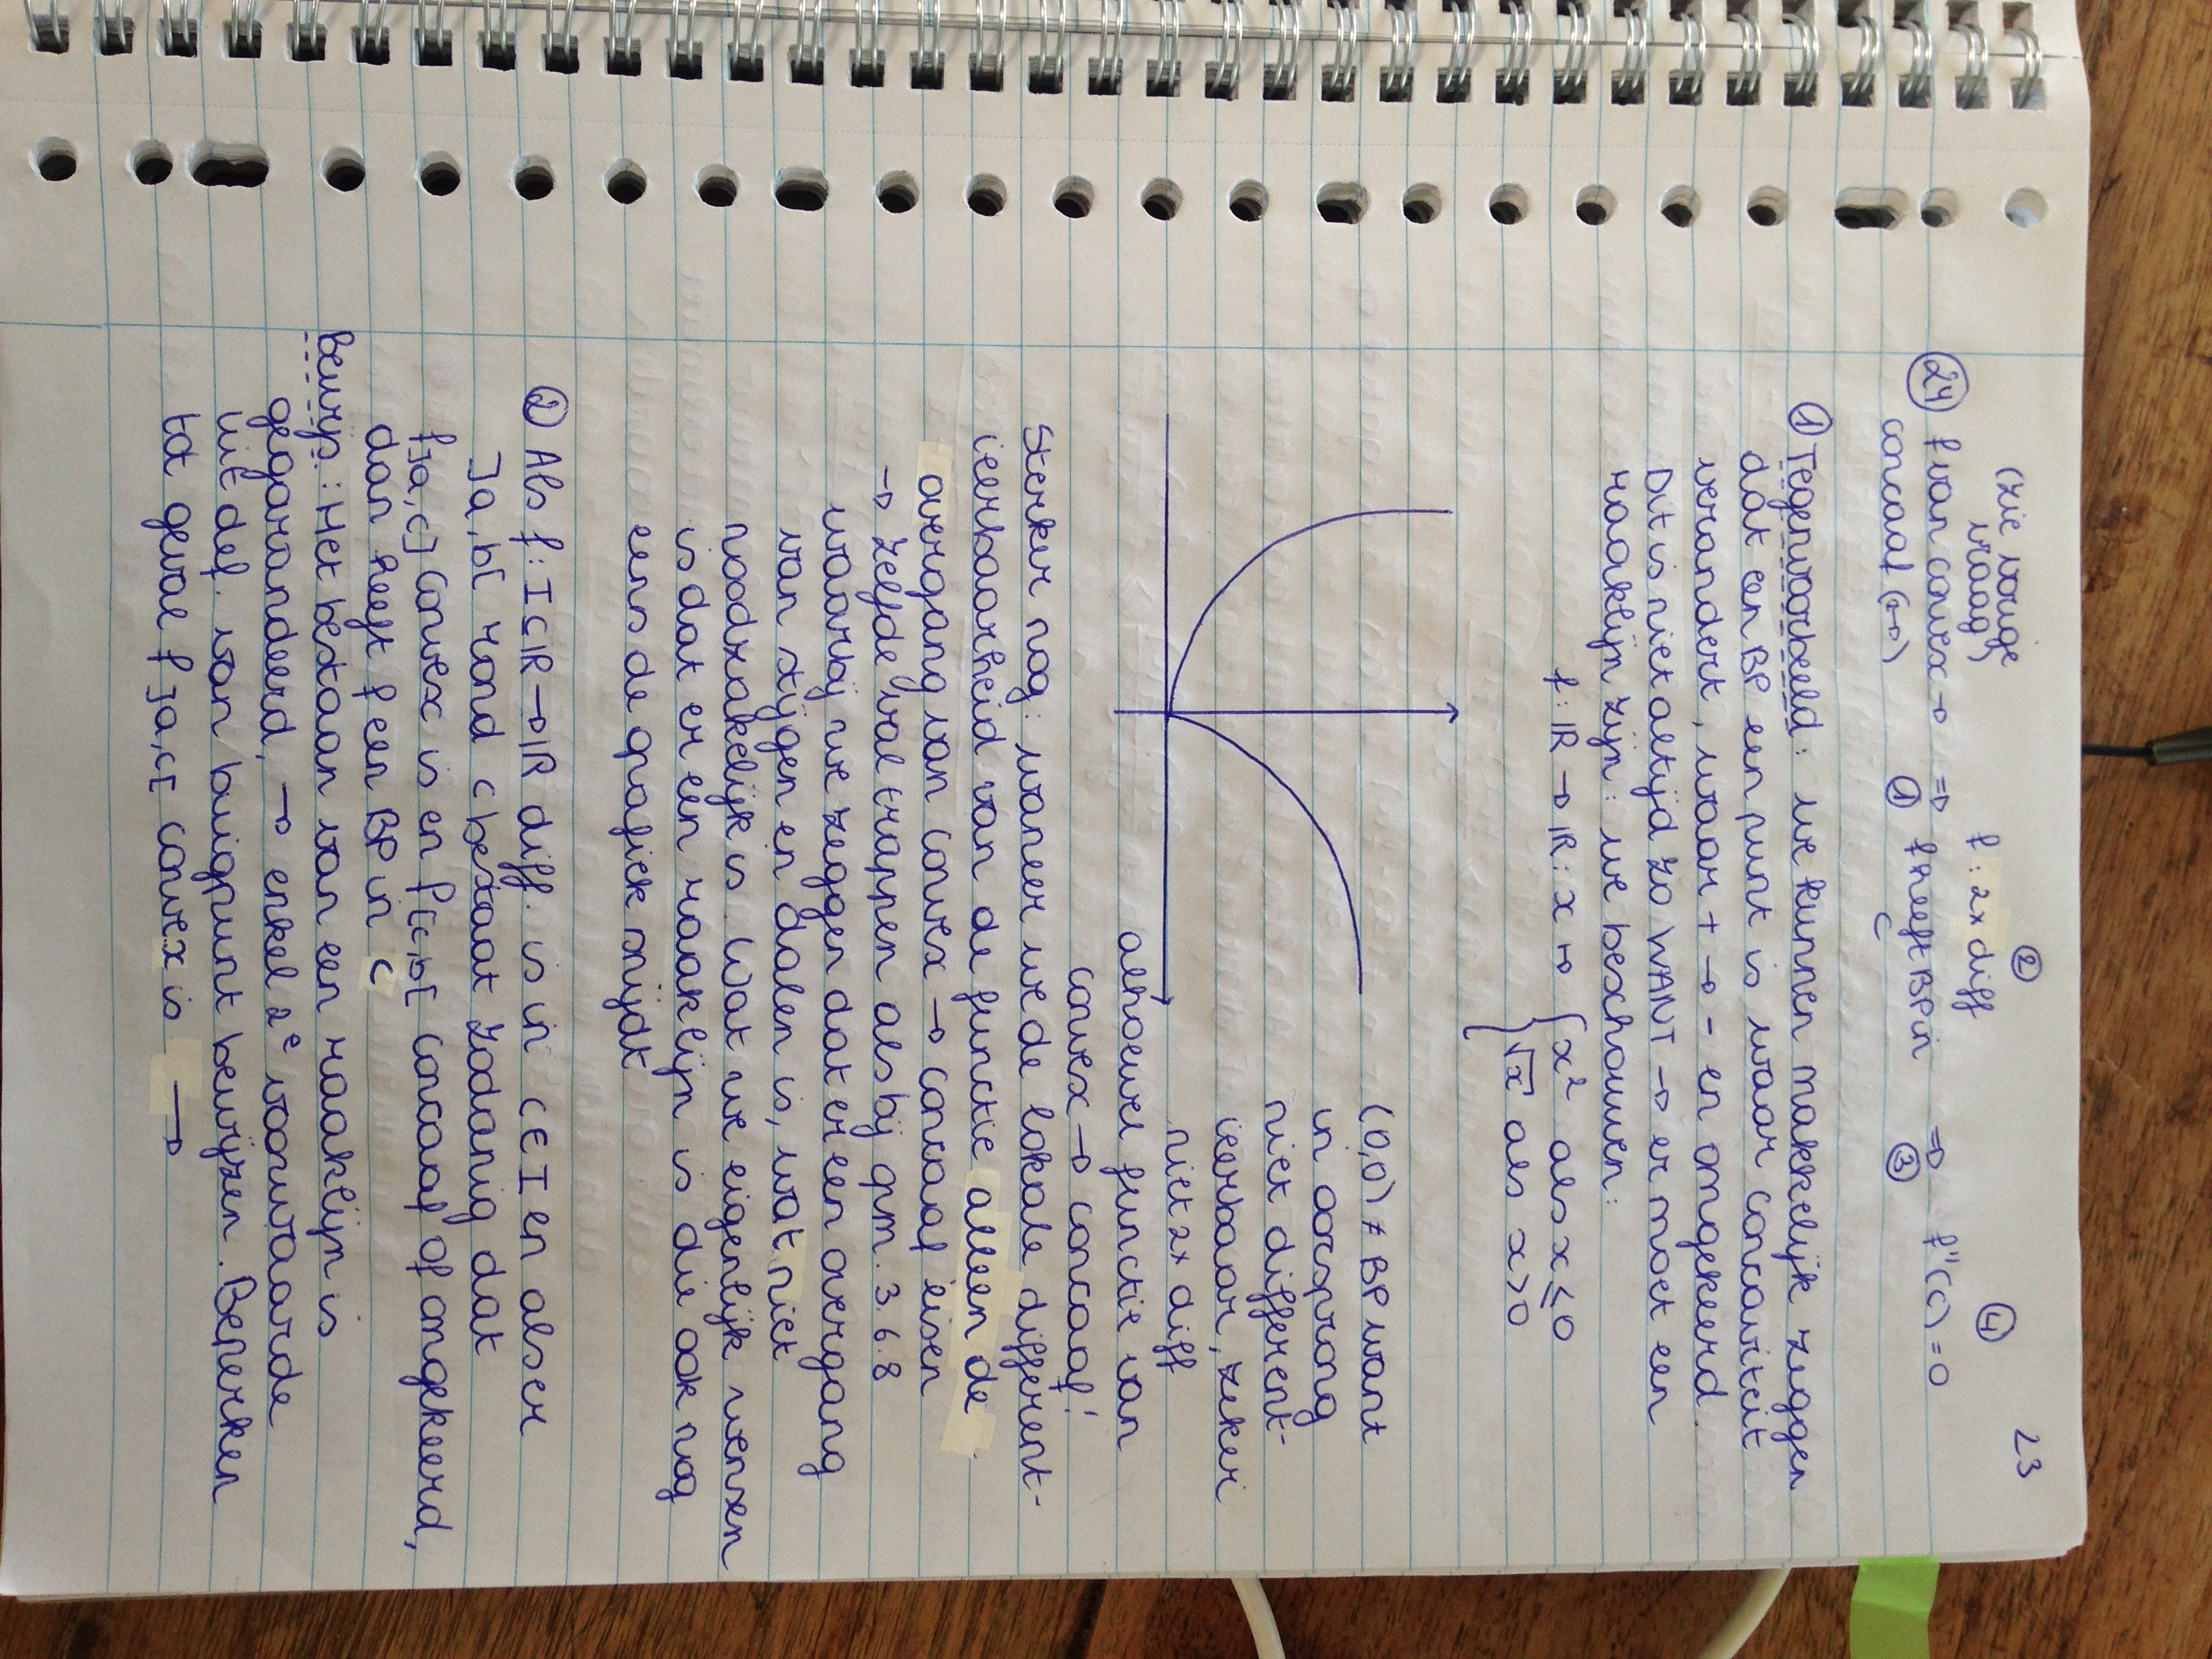 23
(zie vorige
vraag)
②
f : 2x diff
④
24 f van convex → ⇒ f heeft BP in ⇒ f''(c) = 0
concaaf (↔) ① c ③
① Tegenvoorbeeld: we kunnen makkelijk zeggen
dat een BP een punt is waar concaviteit
verandert, waar + → - en omgekeerd.
Dit is niet altijd zo WANT → er moet een
raaklijn zijn: we beschouwen:
f: ℝ → ℝ: x ↦ { x² als x ≤ 0
√x als x > 0
(0,0) ≠ BP want
in oorsprong
niet different-
ieerbaar, zeker
niet 2x diff
alhoewel functie van
convex → concaaf!
Sterker nog: waneer we de lokale different-
ieerbaarheid van de functie alleen de
overgang van convex → concaaf eisen
→ zelfde val trappen als bij opm. 3.6.8
waarbij we zeggen dat er een overgang
van stijgen en dalen is, wat niet
noodzakelijk is. Wat we eigenlijk wensen
is dat er een raaklijn is die ook nog
eens de grafiek snijdt
② Als f: I ⊆ ℝ → ℝ diff. is in c ∈ I en als er
]a,b[ rond c bestaat zodanig dat
f]a,c] convex is en f[c,b[ concaaf of omgekeerd,
dan heeft f een BP in c
Bewijs: Het bestaan van een raaklijn is
gegarandeerd, → enkel 2e voorwaarde
uit def. van buigpunt bewijzen. Beperken
tot geval f]a,c[ convex is →